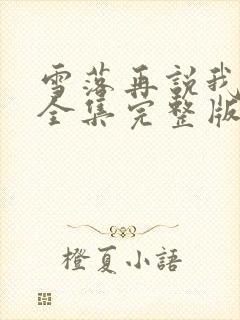 雪落再說我
全集完整版
橙夏小語